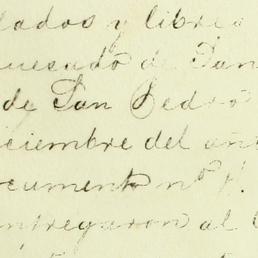 lados y libre
quesado de San
de San Pedro
iciembre del añ
ocumento nº 4.
ntregaron al